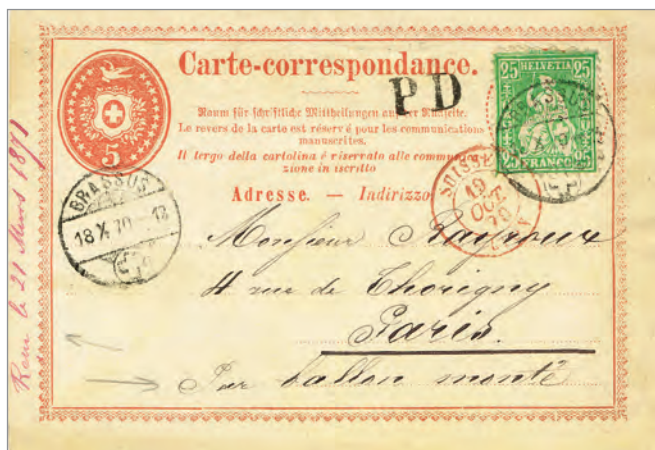 Carte-correspondance.
5
P D
25 HELVETIA 25
25 FRANCO 25
Raum für schriftliche Mittheilungen auf der Rückseite.
Le revers de la carte est réservé pour les communications
manuscrites.
Il tergo della cartolina è riservato alle communica-
zione in iscritto
Adresse. — Indirizzo
BRASSUS
18 X 70 - 12
SUISSE
19
OCT
70
Monsieur Rayroux
4 rue de Thorigny
Paris.
Par ballon monté
le 21 Mars 1871